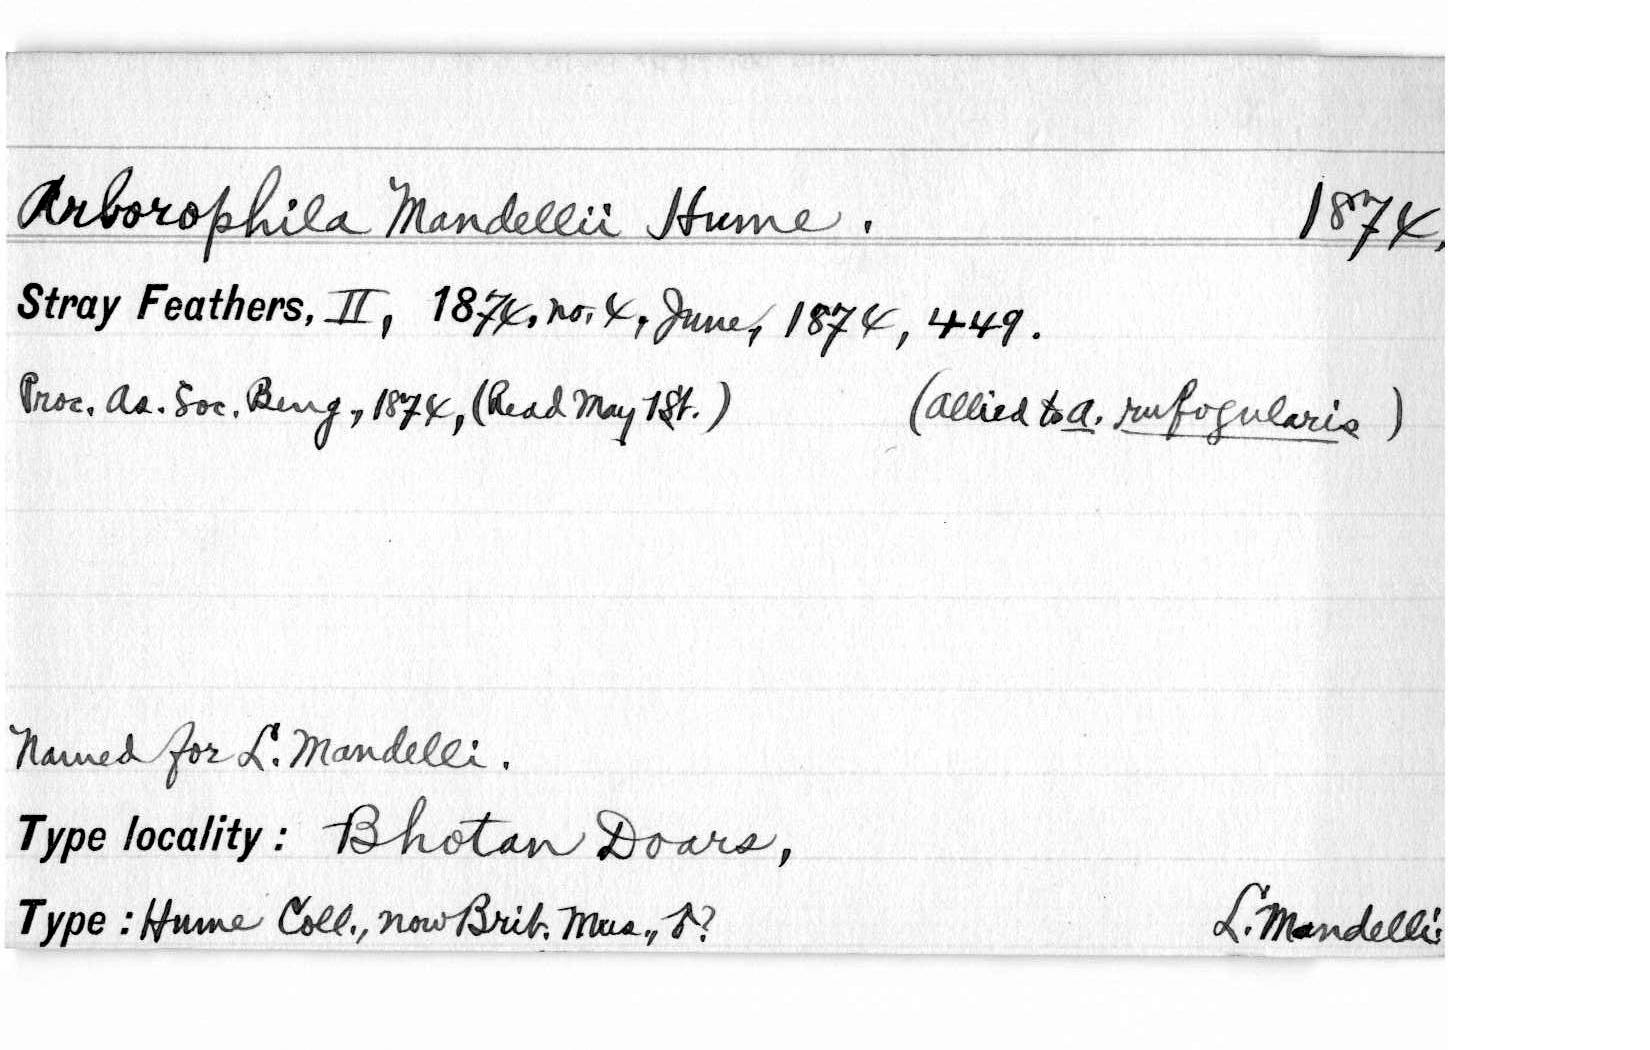 Arborophila Mandellii Hume. 1874.
Stray Feathers, II, 1874, no. 4, June, 1874, 449.
Proc. As. Soc. Beng., 1874, (Read May 1st.) (allied to A. rufogularis)
Named for L. Mandelli.
Type locality: Bhotan Doars,
Type: Hume Coll., now Brit. Mus., ♂? L. Mandelli